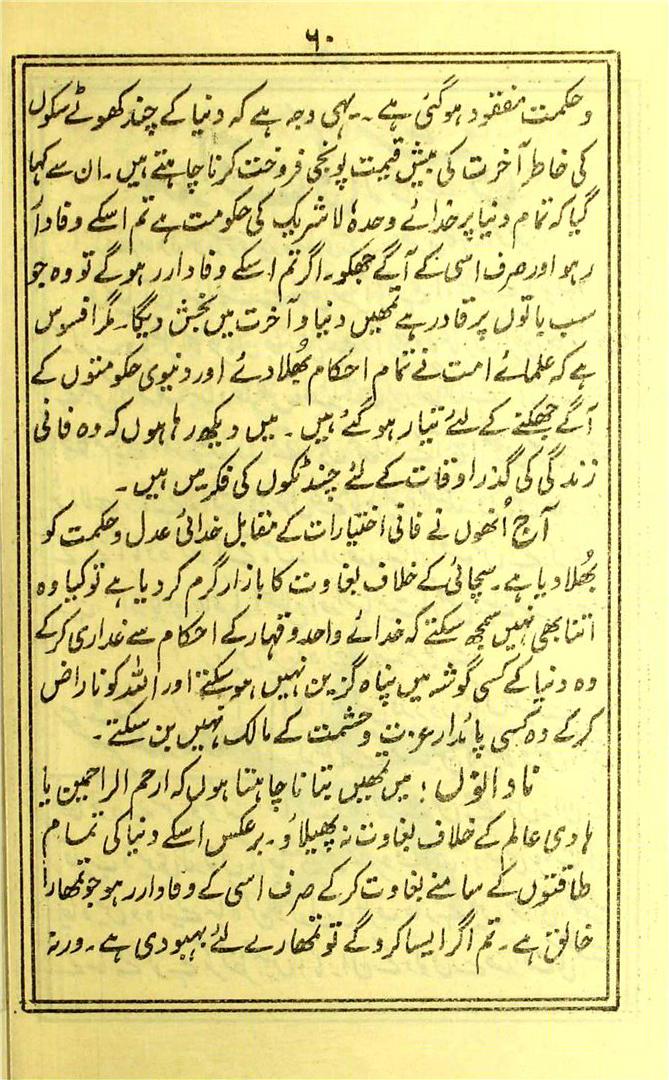 ۶۰
و حکمت مفقود ہو گئی ہے ۔ یہی وجہ ہے کہ دنیا کے چند کھوٹے سکوں
کی خاطر آخرت کی بیش قیمت پونجی فروخت کرنا چاہتے ہیں ۔ ان سے کہا
گیا کہ تمام دنیا پر خدائے وحدہٗ لا شریک کی حکومت ہے تم اسکے وفادار
رہو اور صرف اسی کے آگے جھکو ۔ اگر تم اسکے وفادار رہو گے تو وہ جو
سب باتوں پر قادر ہے تمھیں دنیا و آخرت میں بخش دیگا ۔ مگر افسوس
ہے کہ علمائے امت نے تمام احکام بُھلا دئے اور دنیوی حکومتوں کے
آگے جھکنے کے لئے تیار ہو گئے ہیں ۔ میں دیکھ رہا ہوں کہ وہ فانی
زندگی کی گذر اوقات کے لئے چند ٹکوں کی فکر میں ہیں ۔
آج اُنھوں نے فانی اختیارات کے مقابل خدائی عدل و حکمت کو
بُھلا دیا ہے ۔ سچائی کے خلاف بغاوت کا بازار گرم کر دیا ہے تو کیا وہ
اتنا بھی نہیں سمجھ سکتے کہ خدائے واحد و قہار کے احکام سے غداری کر کے
وہ دنیا کے کسی گوشہ میں پناہ گزین نہیں ہو سکتے اور اللہ کو ناراض
کر کے وہ کسی پائدار عزت و حشمت کے مالک نہیں بن سکتے ۔
نادانوں ! میں تمھیں بتانا چاہتا ہوں کہ ارحم الراحمین یا
ہادی عالم کے خلاف بغاوت نہ پھیلاؤ ۔ برعکس اسکے دنیا کی تمام
طاقتوں کے سامنے بغاوت کر کے صرف اسی کے وفادار رہو جو تمھارا
خالق ہے ۔ تم اگر ایسا کرو گے تو تمھارے لئے بہبودی ہے ۔ ورنہ